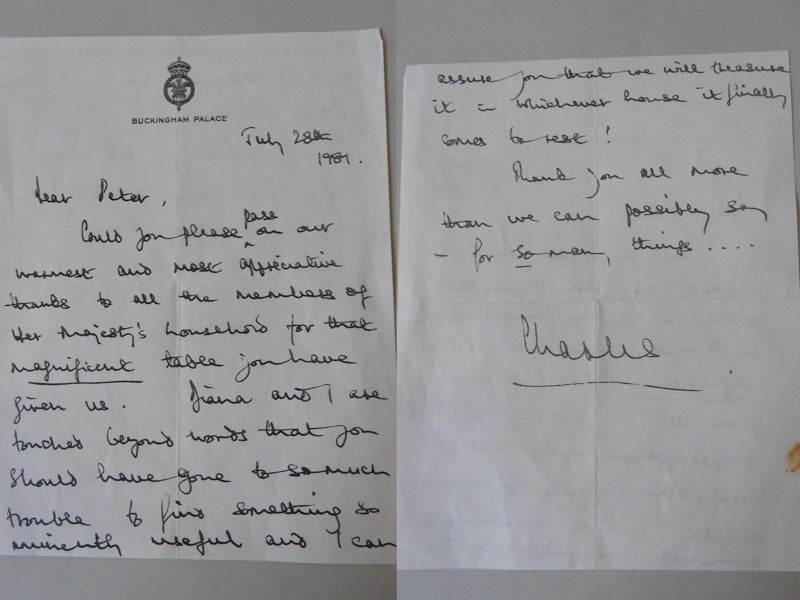 BUCKINGHAM PALACE
July 28th
1981.
Dear Peter,
pass
Could you please on our
warmest and most appreciative
thanks to all the members of
Her Majesty's household for that
magnificent table you have
given us. Diana and I are
touched beyond words that you
should have gone to so much
trouble to find something so
eminently useful and I can
assure you that we will treasure
it in whichever house it finally
comes to rest!
Thank you all more
than we can possibly say
- for so many things ....
Charles